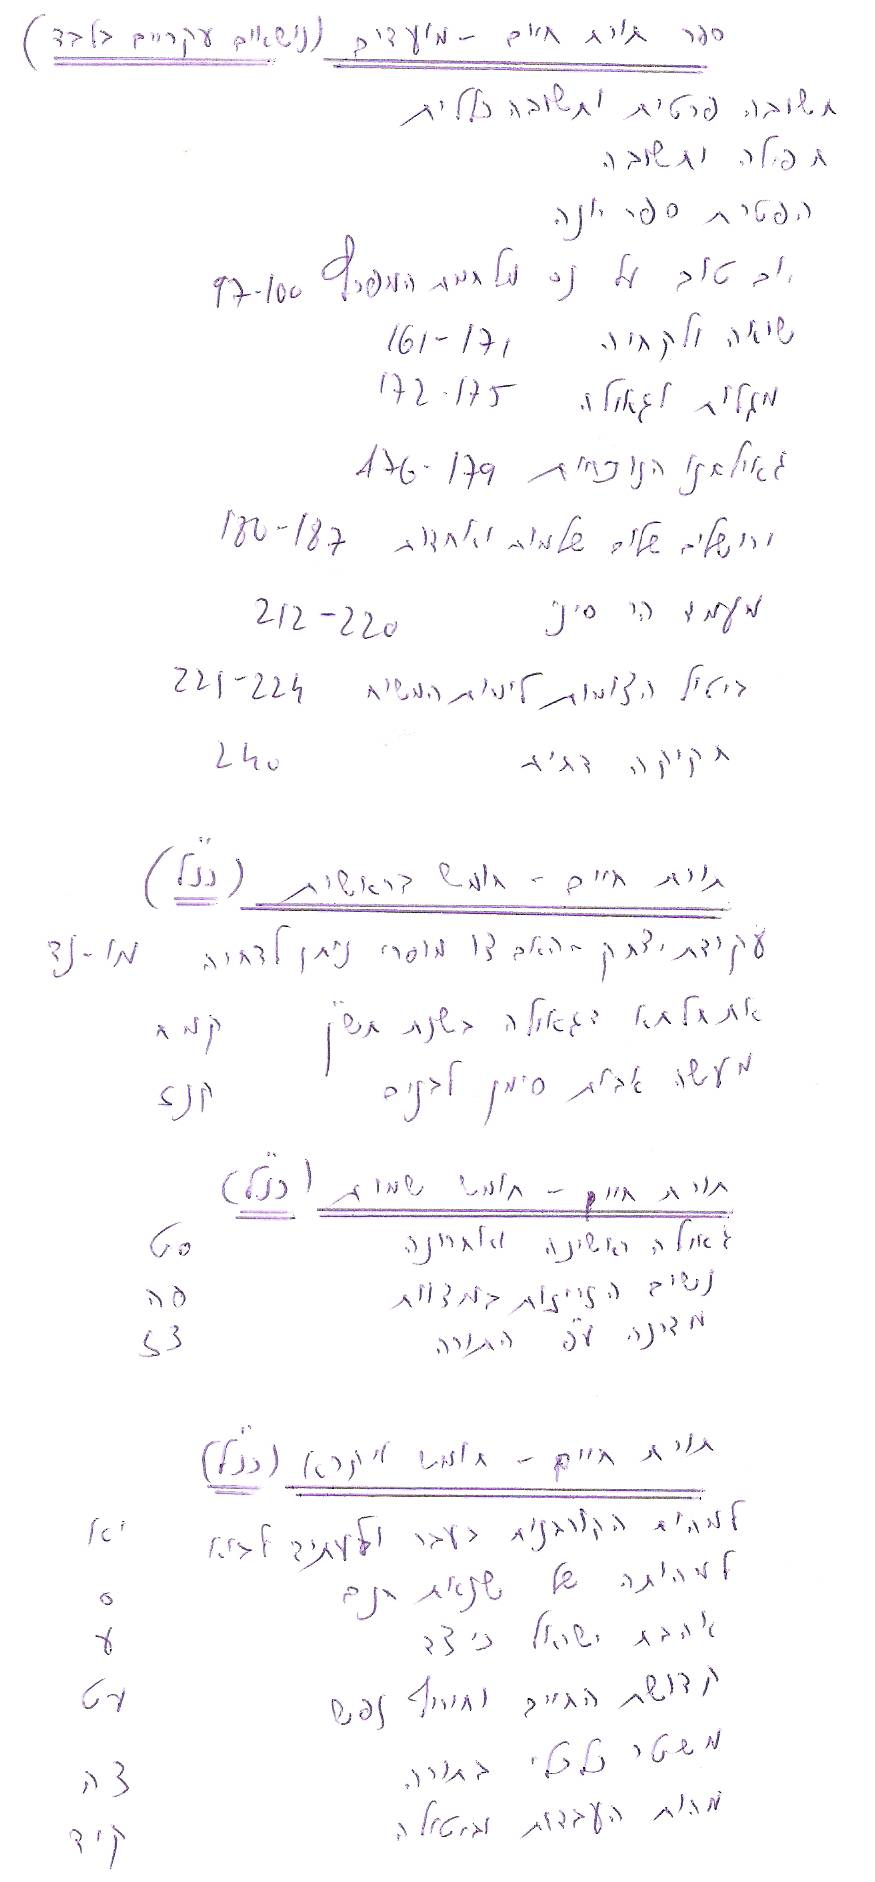 ספר תורת חיים - מועדים (נושאים עקריים בלבד)
תשובה פרטית ותשובה כללית
תפילה ותשובה
הפטרת ספר יונה
יום טוב על נס מלחמת המפרץ 97-100
שואה ולקחיה 161-171
מגלות לגאולה 172-175
גאולתנו הנוכחית 176-179
ירושלים שלום שלמות ואחדות 180-187
מעמד הר סיני 212-220
ביטול הצומות לימות המשיח 221-224
חקיקה דתית 240
תורת חיים - חומש בראשית (כנ"ל)
עקידת יצחק - האם צו מוסרי ניתן לדחיה מו-נד
אתחלתא דגאולה בשנת תש"ן קמח
מעשה אבות סימן לבנים קנז
תורת חיים - חומש שמות (כנ"ל)
גאולה ראשונה ואחרונה סט
נשים במצוות פה
מדינה ע"פ התורה צז
תורת חיים - חומש ויקרא (כנ"ל)
למהות הקורבנות בעבר ולעתיד לבוא יא
למהותה של שנאת חנם ס
אהבת ישראל כיצד ע
קדושת החיים וחירוף נפש עט
משטר כלכלי בתורה צה
מהות העבדות וביטולה קיד